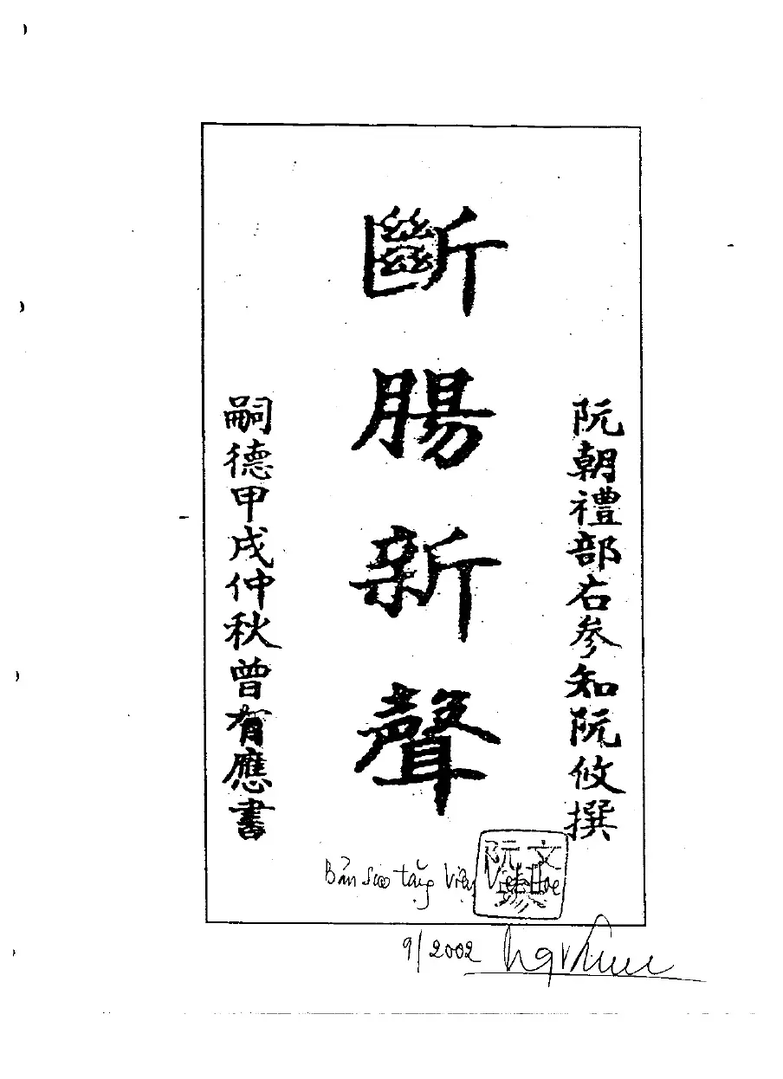 阮朝禮部右參知阮攸撰
斷腸新聲
嗣德甲戌仲秋曾有應書
阮文
Bản sao tặng Viện Việt Học
9/2002